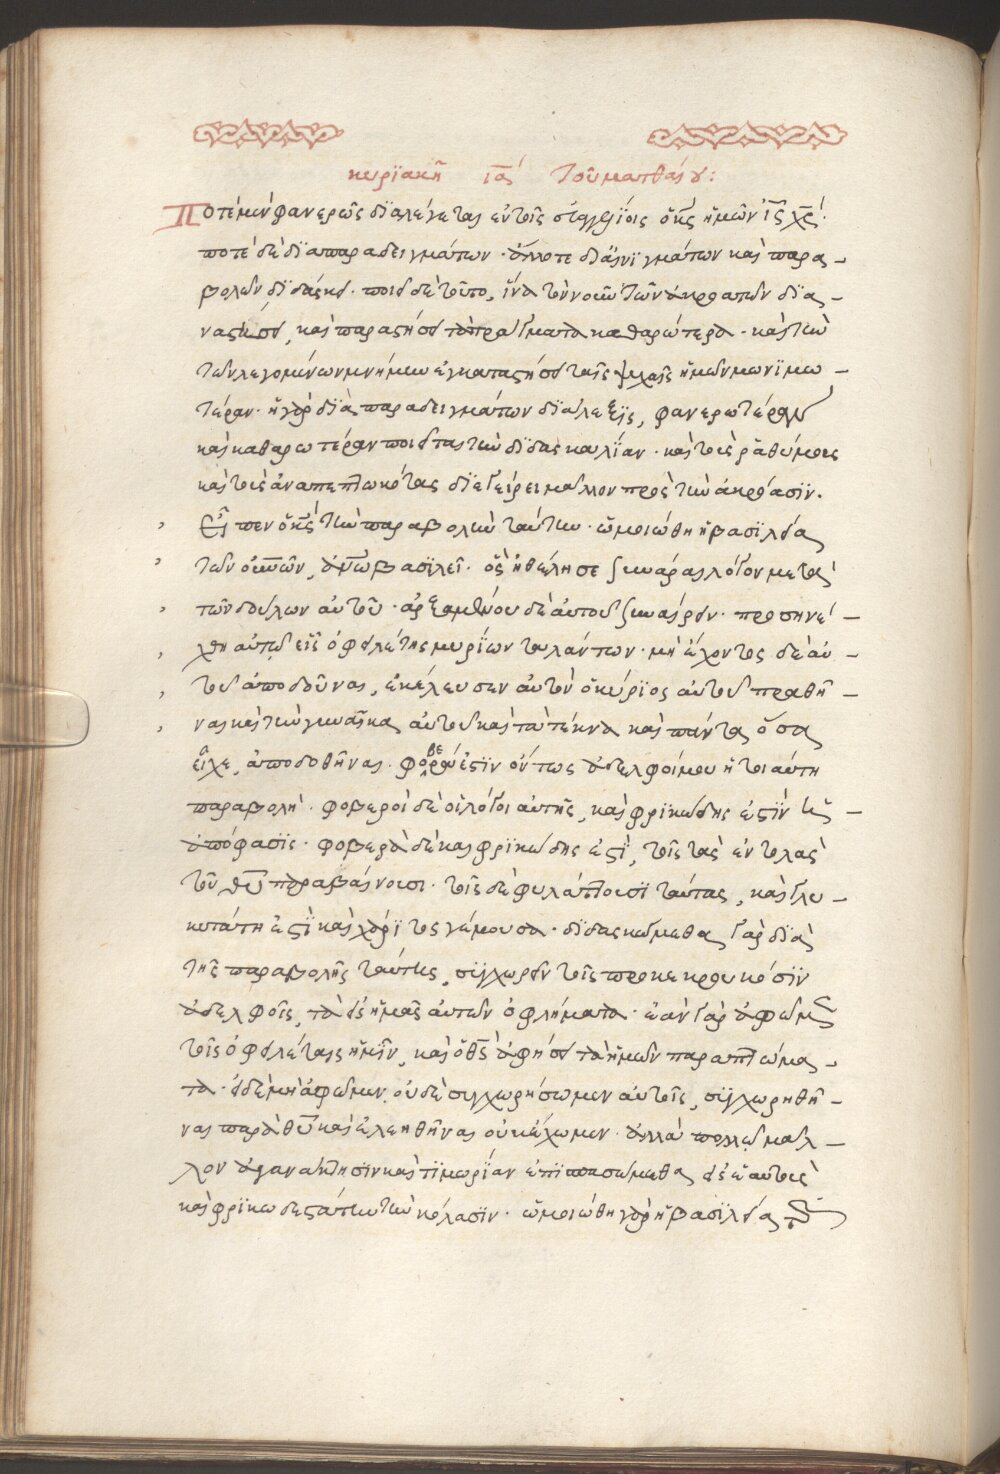 κυρϊακῆ ιᾱ τοῦ ματθαίου:
Ποτὲ μὲν φανερῶς δϊαλέγεται ἐν τοῖς εὐαγγελίοις ὁ κ̅ς ἡμῶν ι̅ς χ̅ς.
ποτὲ δὲ δϊα παραδειγμάτων. ἄλλοτε δϊ' αἰνϊγμάτων καὶ παρα-
βολῶν δϊδάσκει. ποιεῖ δὲ τοῦτο, ἵνα τὸν νοῦν τῶν ἀκροατῶν δϊα-
ναστήσει, καὶ παραστήσει τὰ πράγματα καθαρώτερα. καὶ τὴν
τῶν λεγομένων μνήμην ἐγκαταστήσει ταῖς ψυχαῖς ἡμῶν μονϊμω-
τέραν. ἡ γὰρ δϊὰ παραδειγμάτων δϊάλεξϊς, φανερωτέραν
καὶ καθαρωτέραν ποιεῖται τὴν δϊδασκαλΐαν. καὶ τοὺς ῥαθύμους
καὶ τοὺς ἀναπεπτωκότας δϊεγείρει μᾶλλον πρὸς τὴν ἀκρόασϊν.
Εἶπεν ὁ κ̅ς τὴν παραβολὴν ταύτην. ὡμοιώθη ἡ βασϊλεία
τῶν οὐ̅νῶν, ἀ̅νω βασϊλεῖ. ὃς ἠθέλησε συνᾶραι λόγον μετὰ
τῶν δούλων αὐτοῦ. ἀρξαμένου δὲ αὐτοῦ συναίρειν. προσηνέ-
χθη αὐτῷ εἷς ὀφειλέτης μυρΐων ταλάντων. μὴ ἔχοντος δὲ αὐ-
τοῦ ἀποδοῦναι, ἐκέλευσεν αὐτὸν ὁ κύρϊος αὐτοῦ πραθῆ-
ναι καὶ τὴν γυναῖκα αὐτοῦ καὶ τὰ τέκνα καὶ πάντα ὅσα
εἶχε, ἀποδοθῆναι. φοβερά ἐστϊν ὄντως ἀδελφοί μου ἡ τοιαύτη
παραβολή. φοβεροὶ δὲ οἱ λόγοι αὐτῆς, καὶ φρϊκώδης ἐστϊν ἡ
ἀπόφασϊς. φοβερὰ δὲ καὶ φρϊκώδης ἐστϊ, τοῖς τὰς ἐντολὰς
τοῦ θ̅υ παραβαίνουσι. τοῖς δὲ φυλάττουσϊ ταύτας, καὶ γλυ-
κυτάτη ἐστϊ καὶ χάρϊτος γέμουσα. δϊδασκώμεθα γὰρ δϊὰ
τῆς παραβολῆς ταύτης, συγχωρεῖν τοῖς προκεκρουκόσϊν
ἀδελφοῖς, τὰ εἰς ἡμᾶς αὐτῶν ὀφλήματα. ἐὰν γὰρ ἀφῶμεν
τοῖς ὀφειλέταις ἡμῖν, καὶ ὁ θ̅ς ἀφήσει τὰ ἡμῶν παραπτώμα-
τα. εἰ δὲ μὴ ἀφῶμεν, οὐδὲ συγχωρήσωμεν αὐτοῖς, συγχωρηθῆ-
ναι παρὰ θ̅υ καὶ ἐλεηθῆναι οὐκ ἔχωμεν. ἀλλὰ πολλῷ μᾶλ-
λον ἀγανάκτησϊν καὶ τϊμωρΐαν ἐπϊσπασώμεθα εἰς ἑαυτοὺς
καὶ φρϊκωδεστάτην τὴν κόλασϊν. ὡμοιώθη γὰρ ἡ βασϊλεία τῶν